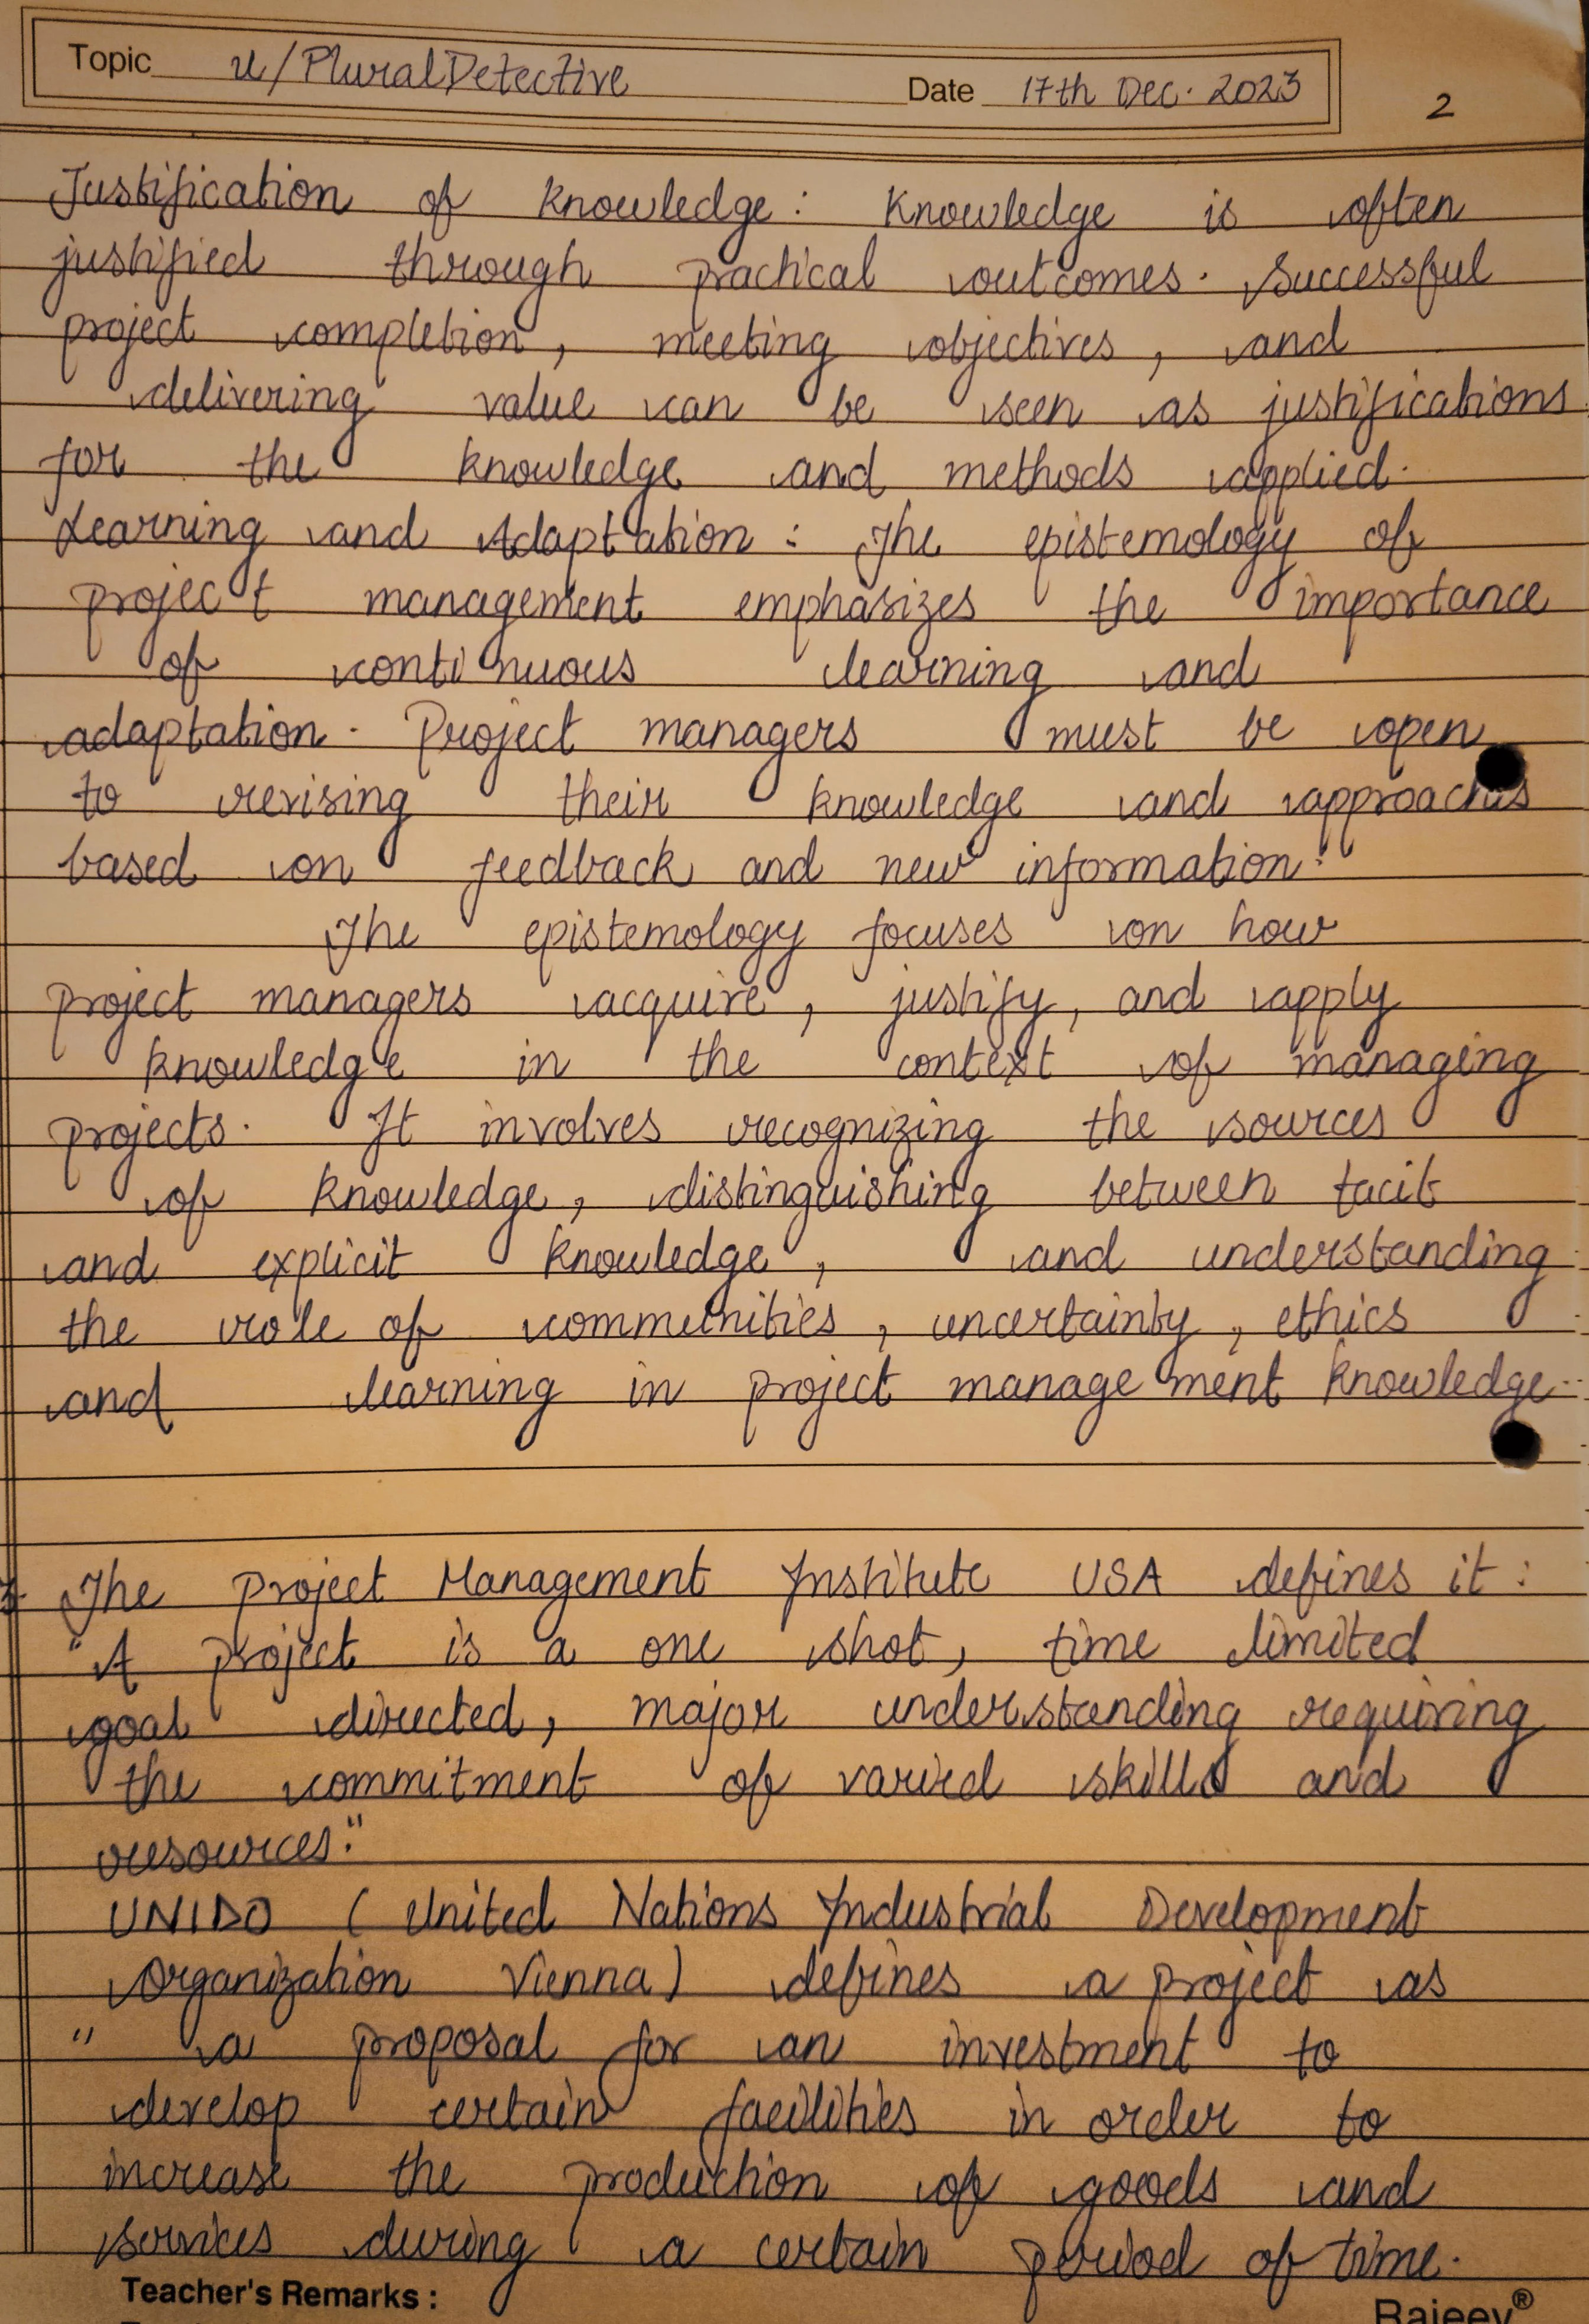 Topic u/PluralDetective Date 17th Dec. 2023 2
Justification of knowledge: Knowledge is often
justified through practical outcomes. Successful
project completion, meeting objectives, and
delivering value can be seen as justifications
for the knowledge and methods applied.
Learning and Adaptation: The epistemology of
project management emphasizes the importance
of continuous learning and
adaptation. Project managers must be open
to revising their knowledge and approaches
based on feedback and new information.
The epistemology focuses on how
project managers acquire, justify, and apply
knowledge in the context of managing
projects. It involves recognizing the sources
of knowledge, distinguishing between tacit
and explicit knowledge, and understanding
the role of communities, uncertainty, ethics
and learning in project management knowledge.
The Project Management Institute USA defines it:
"A project is a one shot, time limited
goal directed, major understanding requiring
the commitment of varied skills and
resources."
UNIDO (United Nations Industrial Development
Organization Vienna) defines a project as
" a proposal for an investment to
develop certain facilities in order to
increase the production of goods and
services during a certain period of time.
Teacher's Remarks :
Rajeev®